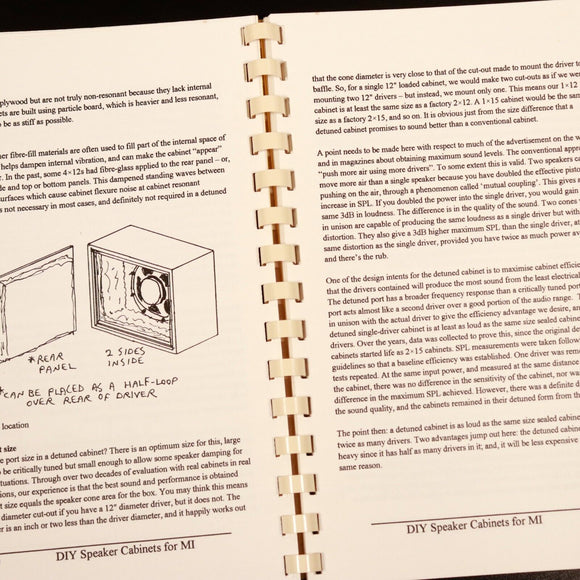 plywood but are not truly non-resonant because they lack internal
ets are built using particle board, which is heavier and less resonant,
o be as stiff as possible.
her fibre-fill materials are often used to fill part of the internal space of
helps dampen internal vibration, and can make the cabinet "appear"
r. In the past, some 4×12s had fibre-glass applied to the rear panel – or,
de and top or bottom panels. This dampened standing waves between
urfaces which cause cabinet flexure noise at cabinet resonant
s not necessary in most cases, and definitely not required in a detuned
*REAR
PANEL
2 SIDES
INSIDE
*CAN BE PLACED AS A HALF-LOOP
OVER REAR OF DRIVER
location
t size
e port size in a detuned cabinet? There is an optimum size for this, large
o be critically tuned but small enough to allow some speaker damping for
tuations. Through over two decades of evaluation with real cabinets in real
ions, our experience is that the best sound and performance is obtained
t size equals the speaker cone area for the box. You may think this means
diameter cut-out if you have a 12" diameter driver, but it does not. The
er is an inch or two less than the driver diameter, and it happily works out
DIY Speaker Cabinets for MI
that the cone diameter is very close to that of the cut-out made to mount the driver to
baffle. So, for a single 12" loaded cabinet, we would make two cut-outs as if we wer
mounting two 12" drivers – but instead, we mount only one. This means our 1×12
cabinet is at least the same size as a factory 2×12. A 1×15 cabinet would be the sam
size as a factory 2×15, and so on. It is obvious just from the size difference that a
detuned cabinet promises to sound better than a conventional cabinet.
A point needs to be made here with respect to much of the advertisement on the w
and in magazines about obtaining maximum sound levels. The conventional appro
"push more air using more drivers". To some extent this is valid. Two speakers ca
move more air than a single speaker because you have doubled the effective pisto
pushing on the air, through a phenomenon called 'mutual coupling'. This gives a
increase in SPL. If you doubled the power into the single driver, you would gain
same 3dB in loudness. The difference is in the quality of the sound. Two cones
in unison are capable of producing the same loudness as a single driver but with
distortion. They also give a 3dB higher maximum SPL than the single driver, at
same distortion as the single driver, provided you have twice as much power av
and there's the rub.
One of the design intents for the detuned cabinet is to maximise cabinet efficie
that the drivers contained will produce the most sound from the least electrical
The detuned port has a broader frequency response than a critically tuned port
port acts almost like a second driver over a good portion of the audio range. T
in unison with the actual driver to give the efficiency advantage we desire, and
detuned single-driver cabinet is at least as loud as the same size sealed cabine
drivers. Over the years, data was collected to prove this, since the original de
cabinets started life as 2×15 cabinets. SPL measurements were taken followi
guidelines so that a baseline efficiency was established. One driver was remo
tests repeated. At the same input power, and measured at the same distance
the cabinet, there was no difference in the sensitivity of the cabinet, nor was
difference in the maximum SPL achieved. However, there was a definite d
the sound quality, and the cabinets remained in their detuned form from tha
The point then: a detuned cabinet is as loud as the same size sealed cabinet
twice as many drivers. Two advantages jump out here: the detuned cabine
heavy since it has half as many drivers in it; and, it will be less expensive
same reason.
DIY Speaker Cabinets for MI